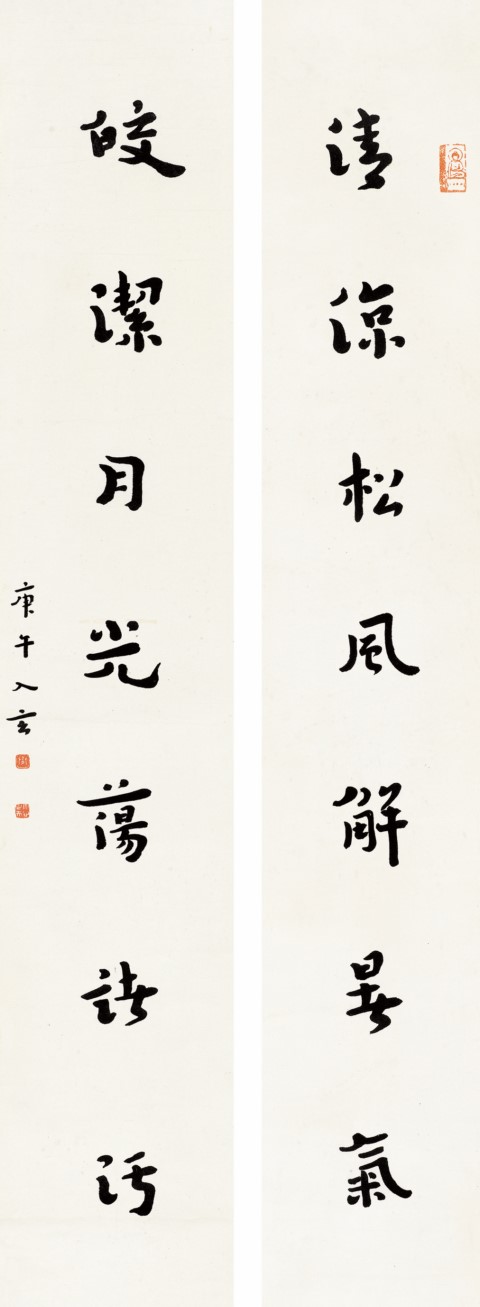 清涼松風解暑氣
皎潔月光蕩諸污
庚午入玄